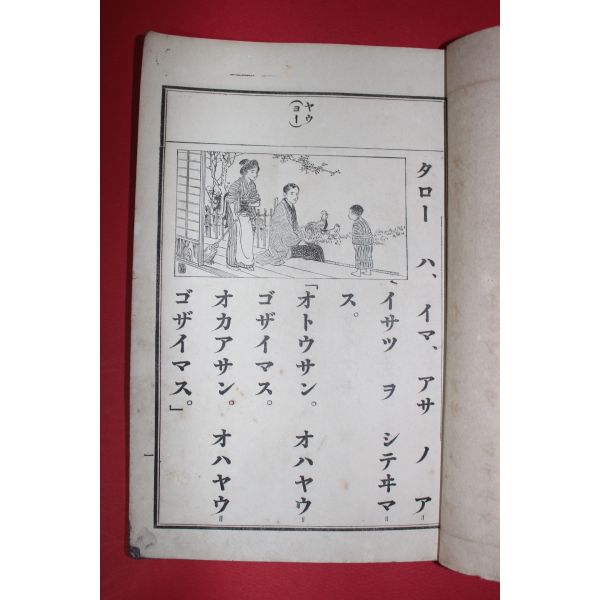 ヤウ
(ヨー)
タロー ハ、イマ、アサ ノ ア＝
イサツ ヲ シテヰマ＝
ス。
「オトウサン。オハヤウ＝
ゴザイマス。
オカアサン。オハヤウ＝
ゴザイマス。」
一